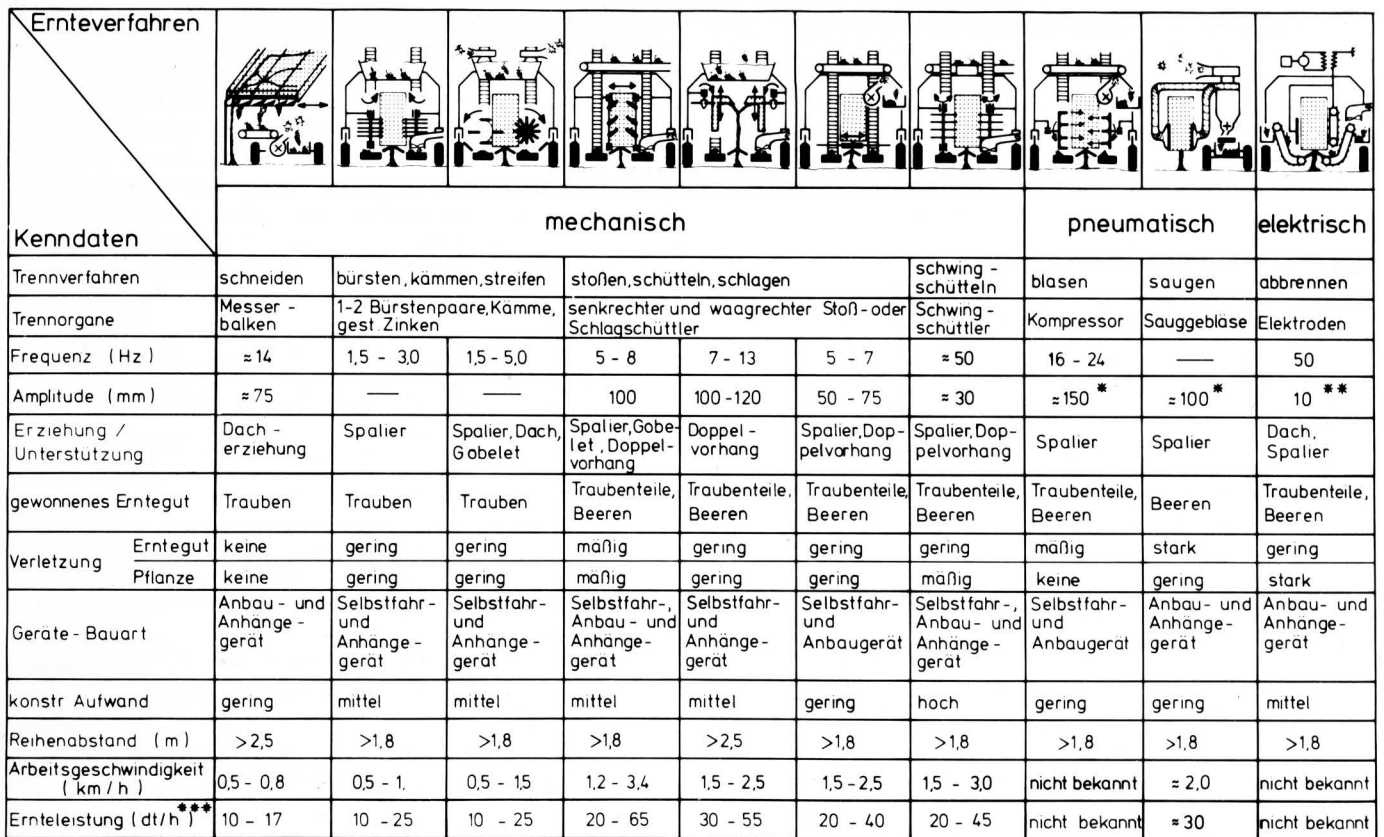 Ernteverfahren
Kenndaten
mechanisch pneumatisch elektrisch
Trennverfahren schneiden bürsten, kämmen, streifen stoßen, schütteln, schlagen schwing - schütteln blasen saugen abbrennen
Trennorgane Messer - balken 1-2 Bürstenpaare, Kämme, gest. Zinken senkrechter und waagrechter Stoß - oder Schlagschüttler Schwing - schüttler Kompressor Sauggebläse Elektroden
Frequenz (Hz) ≈ 14 1,5 - 3,0 1,5 - 5,0 5 - 8 7 - 13 5 - 7 ≈ 50 16 - 24 — 50
Amplitude (mm) ≈ 75 — — 100 100 - 120 50 - 75 ≈ 30 ≈ 150 * ≈ 100 * 10 **
Erziehung / Unterstützung Dach - erziehung Spalier Spalier, Dach, Gobelet Spalier, Gobe- let, Doppel- vorhang Doppel - vorhang Spalier, Dop- pelvorhang Spalier, Dop- pelvorhang Spalier Spalier Dach, Spalier
gewonnenes Erntegut Trauben Trauben Trauben Traubenteile, Beeren Traubenteile, Beeren Traubenteile, Beeren Traubenteile, Beeren Traubenteile, Beeren Beeren Traubenteile, Beeren
Verletzung Erntegut keine gering gering mäßig gering gering gering mäßig stark gering
Pflanze keine gering gering mäßig gering gering mäßig keine gering stark
Geräte - Bauart Anbau - und Anhänge - gerät Selbstfahr - und Anhänge - gerät Selbstfahr- und Anhänge - gerät Selbstfahr-, Anbau - und Anhänge- gerät Selbstfahr- und Anhänge- gerät Selbstfahr- und Anbaugerät Selbstfahr -, Anbau - und Anhänge - gerät Selbstfahr- und Anbaugerät Anbau- und Anhänge- gerät Anbau- und Anhänge- gerät
konstr Aufwand gering mittel mittel mittel mittel gering hoch gering gering mittel
Reihenabstand (m) >2,5 >1,8 >1,8 >1,8 >2,5 >1,8 >1,8 >1,8 >1,8 >1,8
Arbeitsgeschwindigkeit (km/h) 0,5 - 0,8 0,5 - 1, 0,5 - 1,5 1,2 - 3,4 1,5 - 2,5 1,5 - 2,5 1,5 - 3,0 nicht bekannt ≈ 2,0 nicht bekannt
Ernteleistung (dt/h) *** 10 - 17 10 - 25 10 - 25 20 - 65 30 - 55 20 - 40 20 - 45 nicht bekannt ≈ 30 nicht bekannt